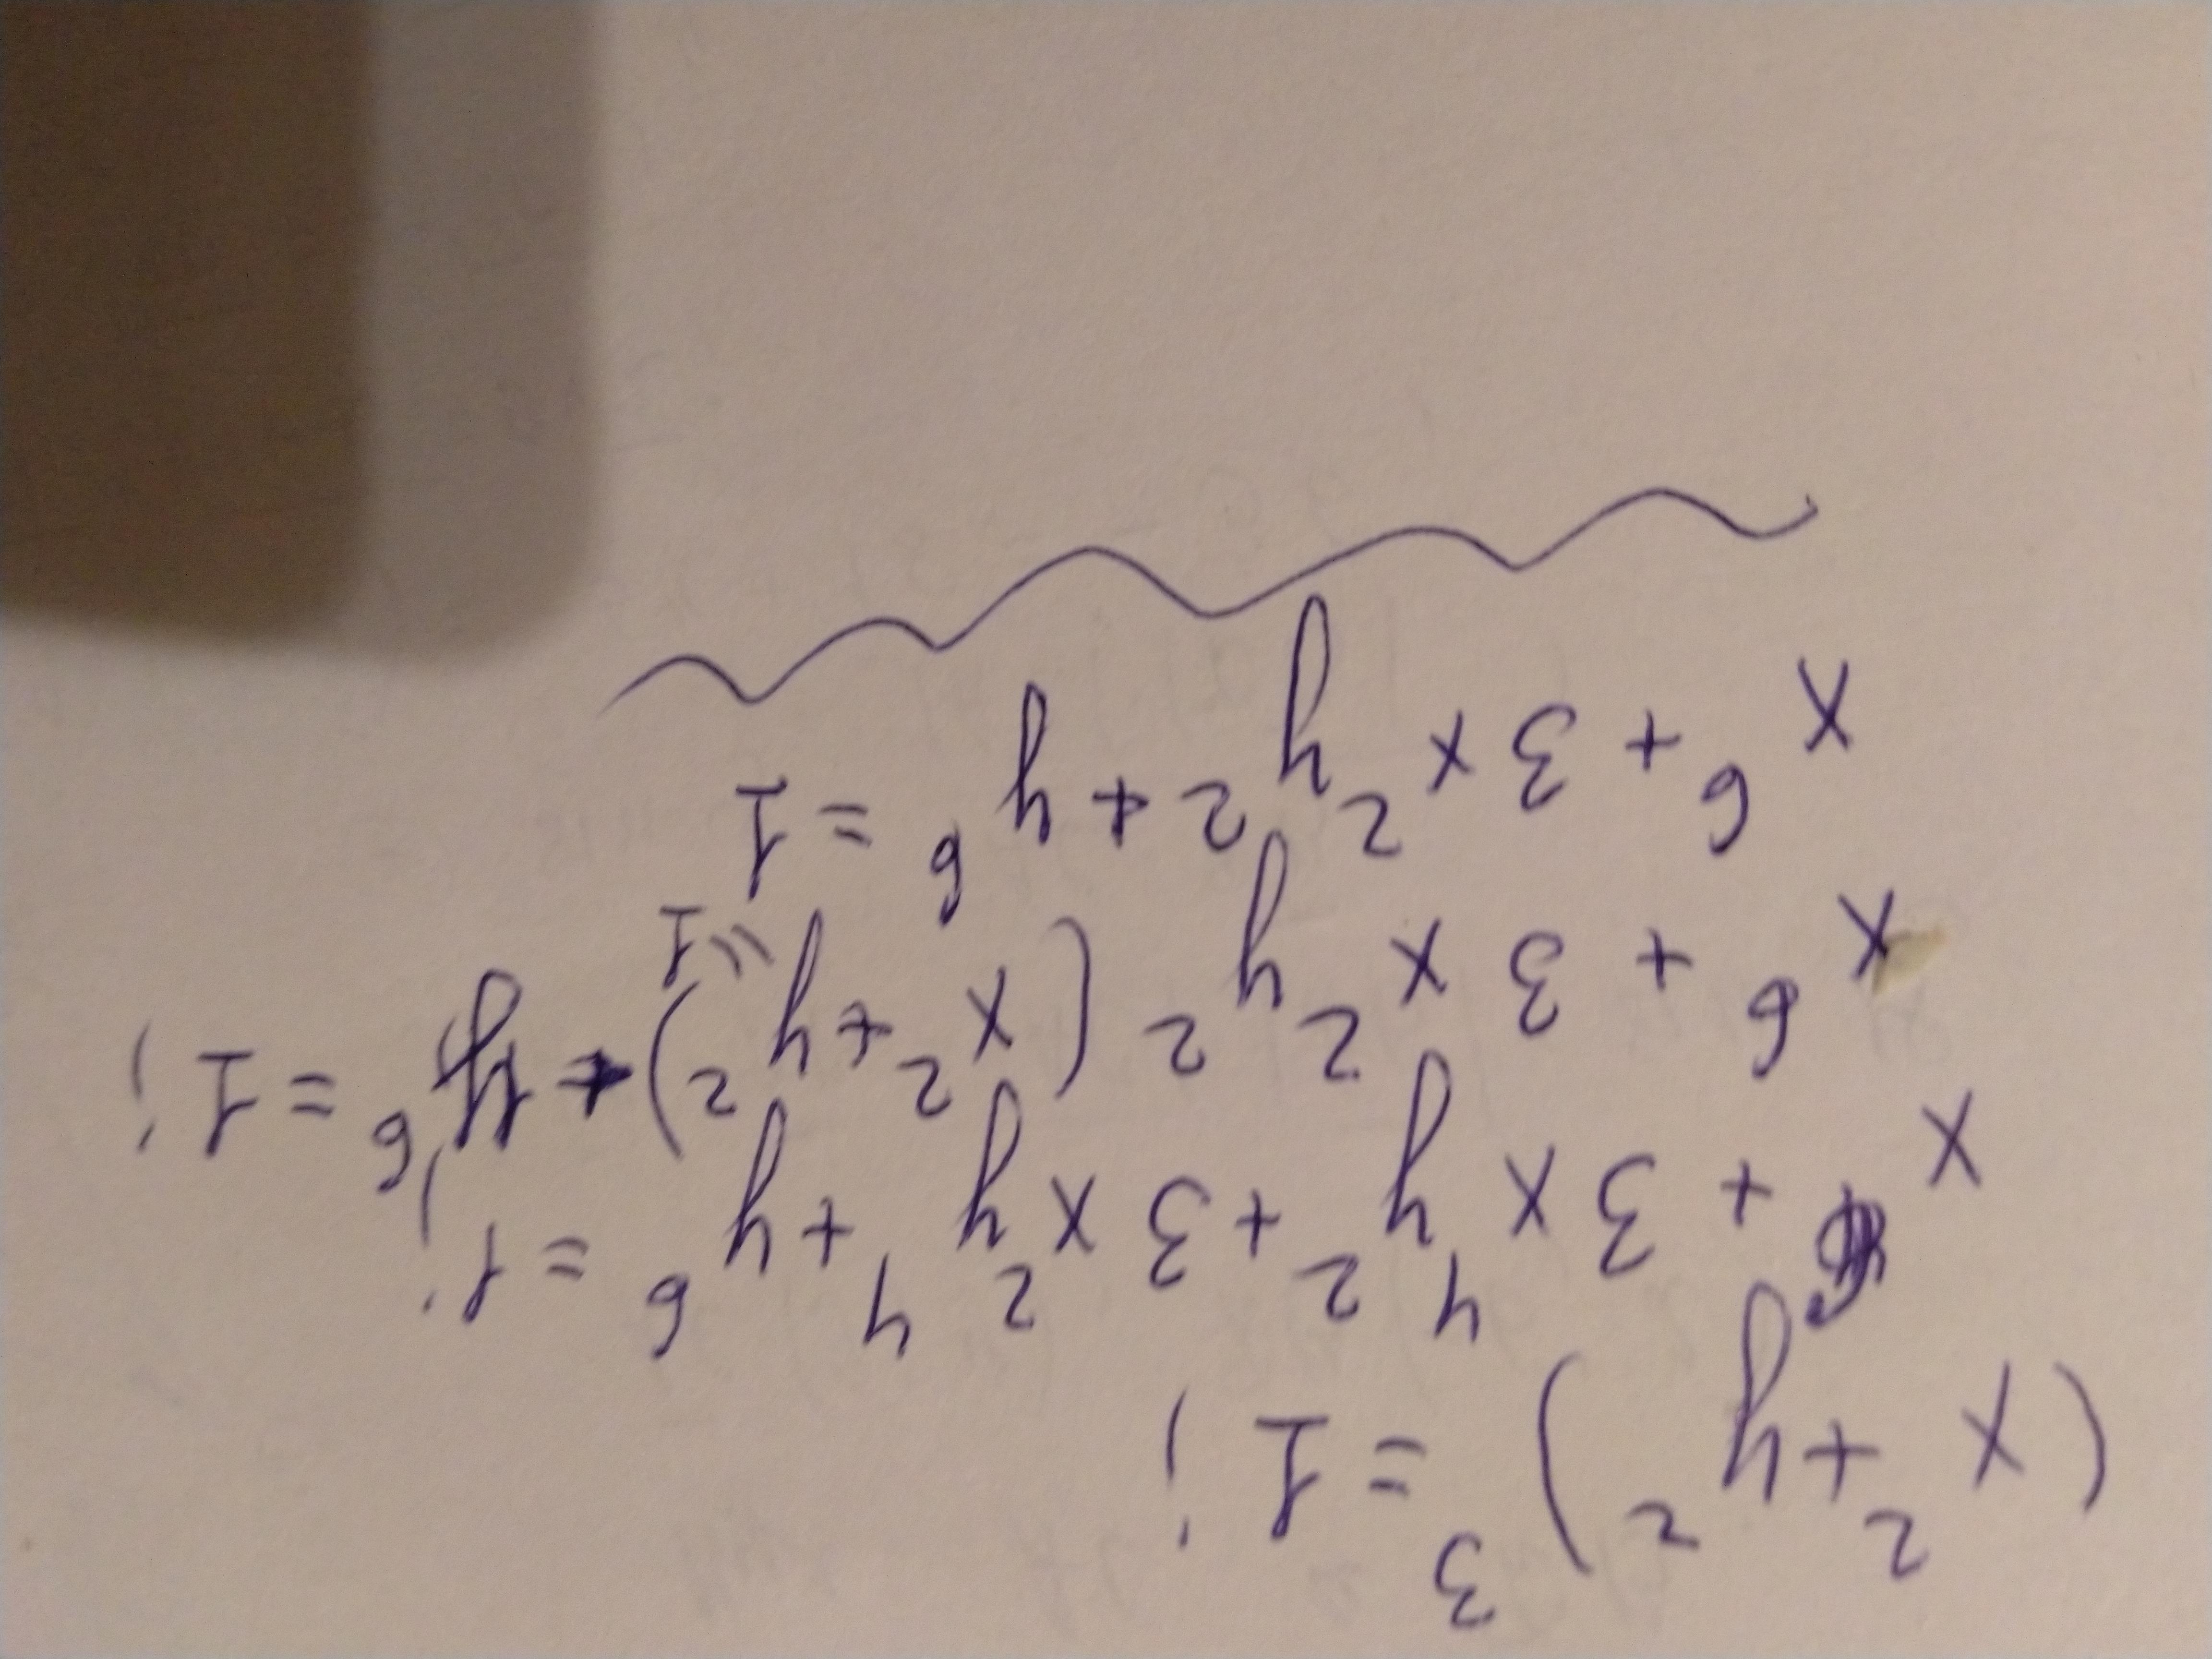 (x²+y²)³=1;
x⁶+3x⁴y²+3x²y⁴+y⁶=1;
x⁶+3x²y²(x²+y²)+y⁶=1;
=1
x⁶+3x²y²+y⁶=1